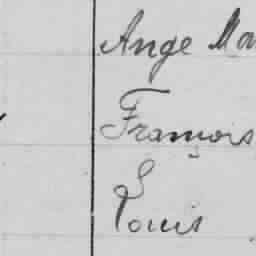 Ange Ma
François
Louis